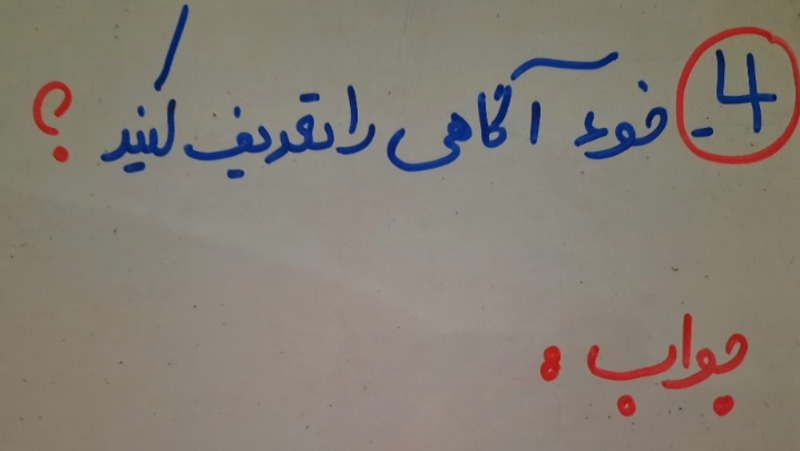 4- خود آگاهی را تعریف کنید ؟
جواب :